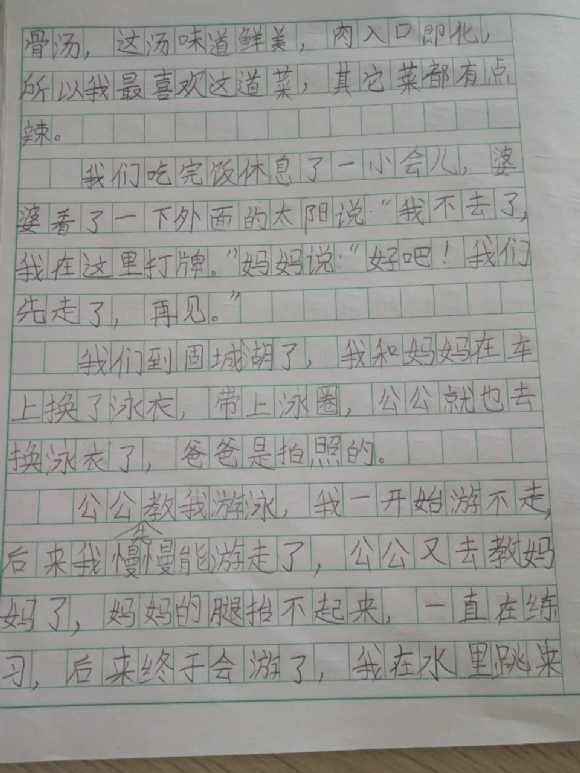 骨汤，这汤味道鲜美，肉入口即化，
所以我最喜欢这道菜，其它菜都有点
辣。
我们吃完饭休息了一小会儿，婆
婆看了一下外面的太阳说：“我不去了，
我在这里打牌。”妈妈说：“好吧！我们
先走了，再见。”
我们到固城湖了，我和妈妈在车
上换了泳衣，带上泳圈，公公就也去
换泳衣了，爸爸是拍照的。
公公教我游泳，我一开始游不走，
后来我慢慢能游走了，公公又去教妈
妈了，妈妈的腿抬不起来，一直在练
习，后来终于会游了，我在水里跳来